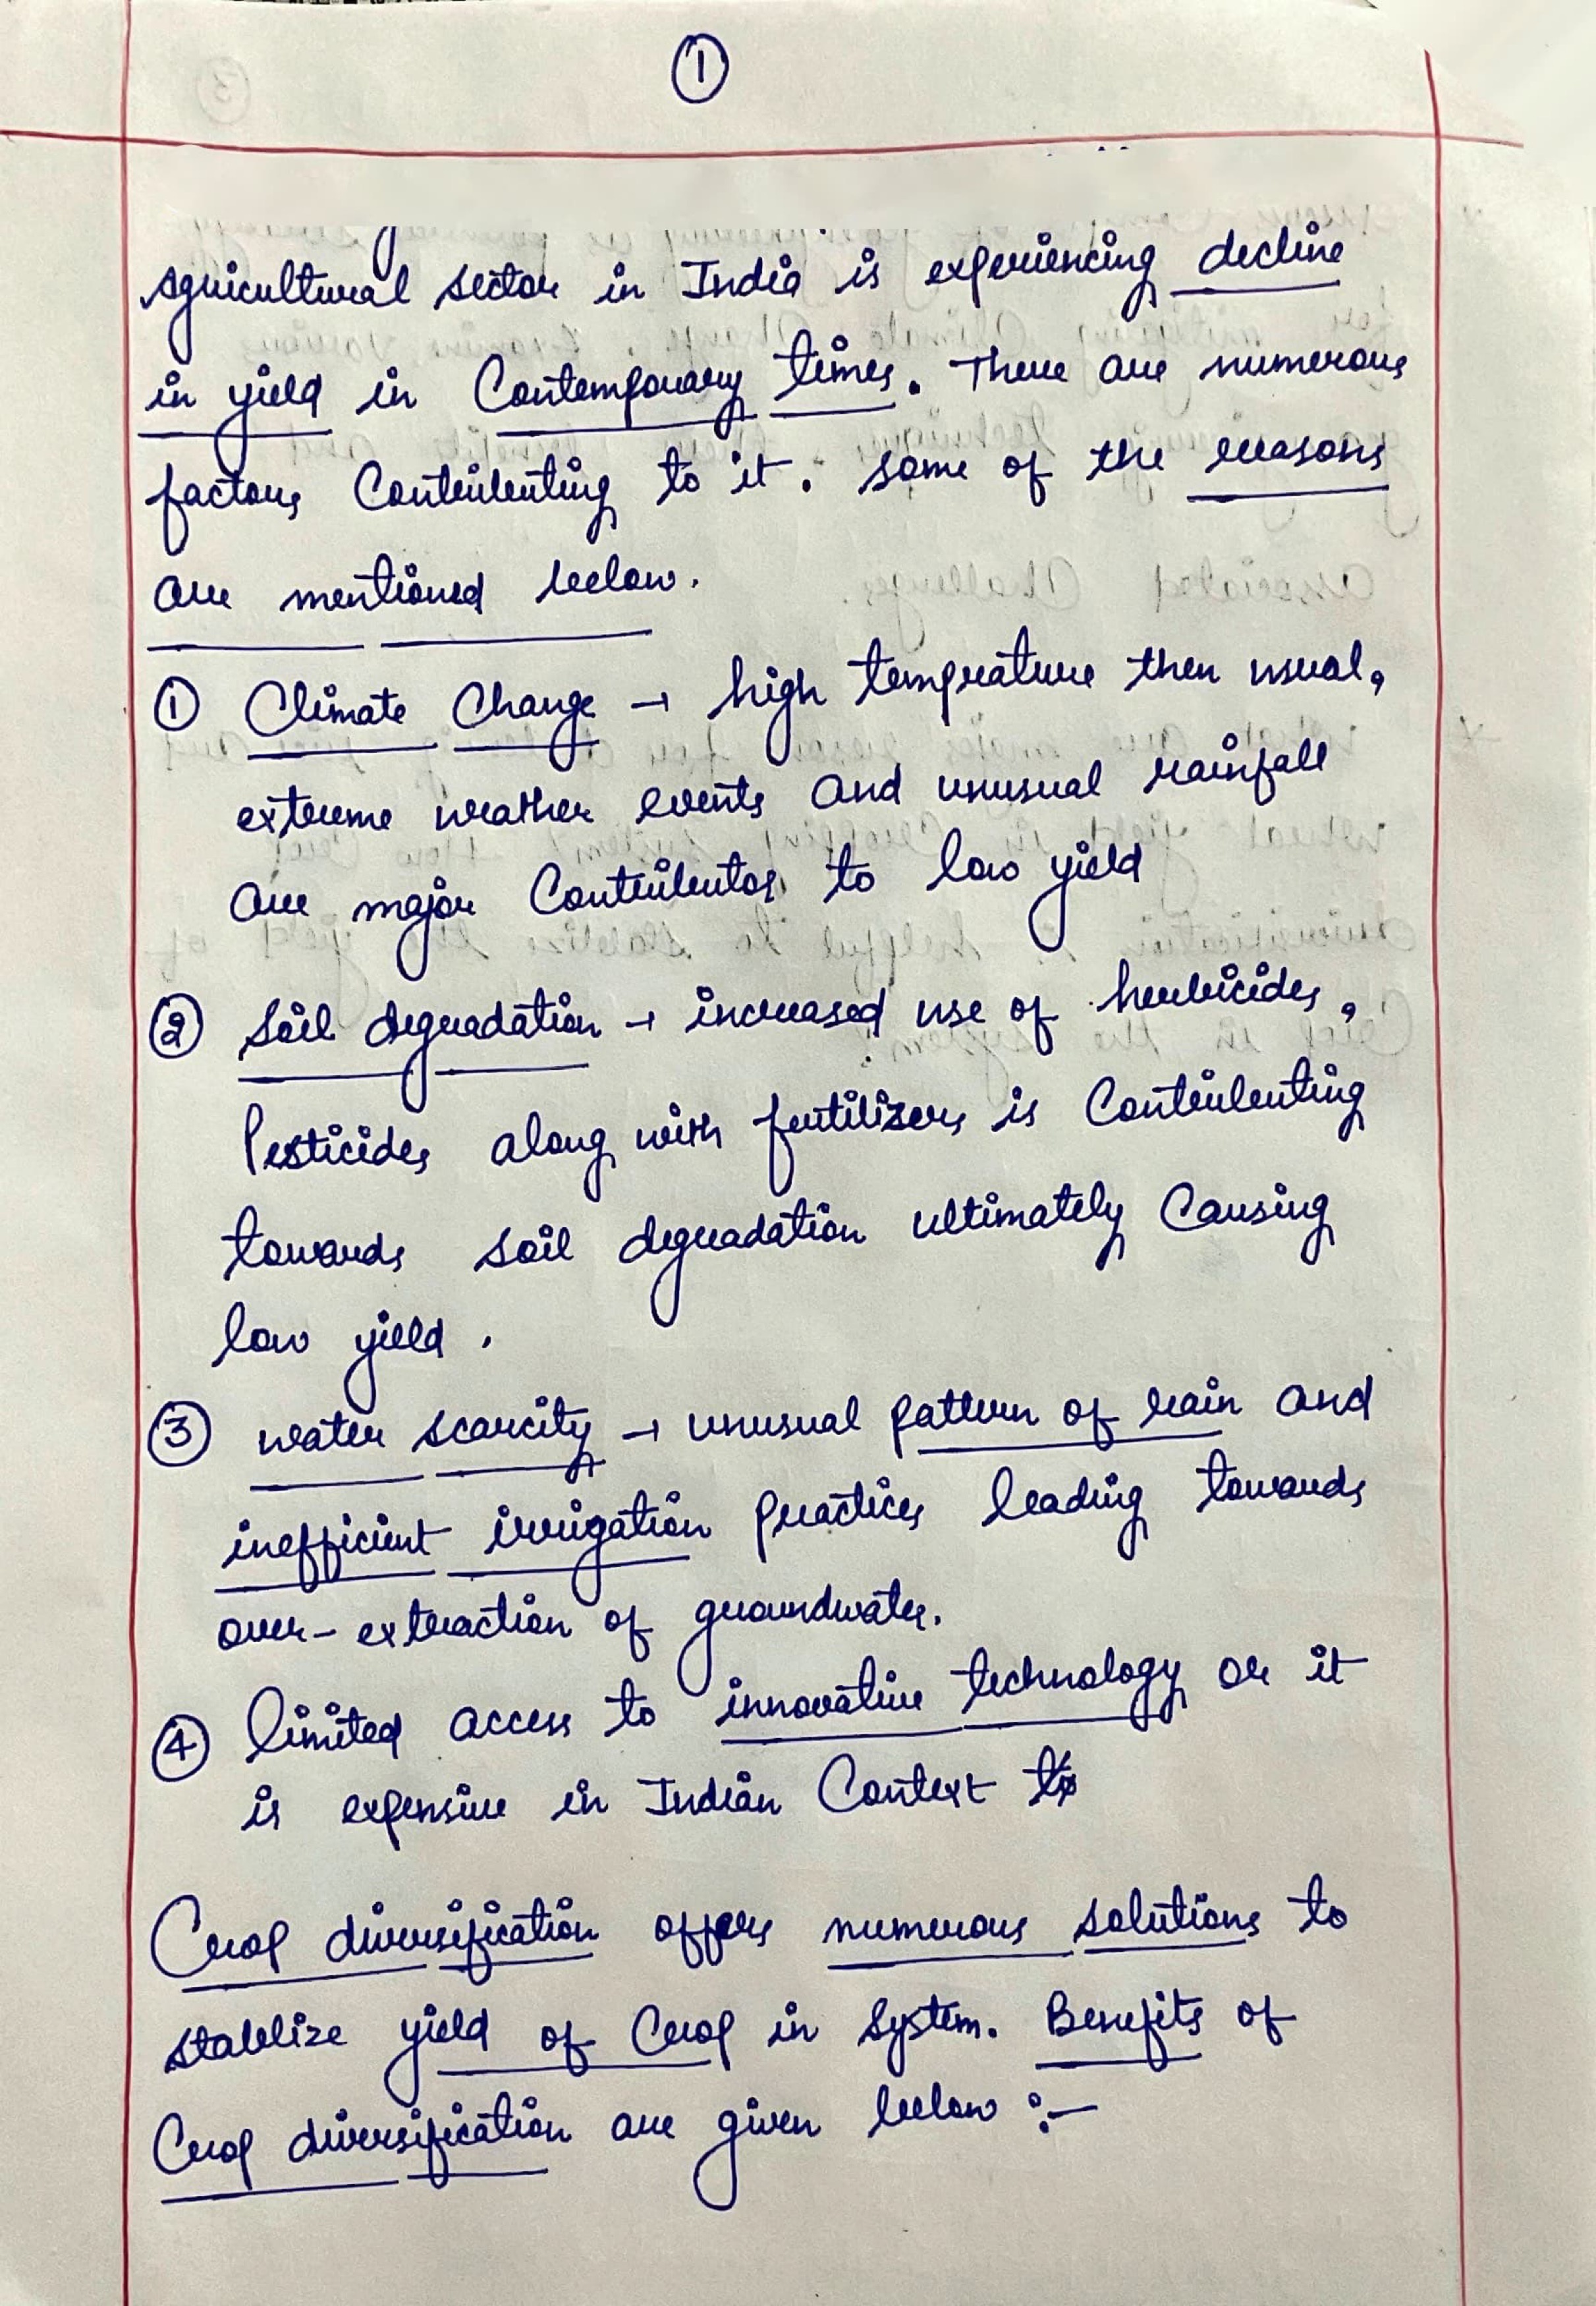 ①
Agricultural sector in India is experiencing decline
in yield in Contemporary times. There are numerous
factors Contributing to it. Some of the reasons
are mentioned below.
① Climate Change → high temprature then usual,
extreme weather events and unusual rainfall
are major Contributos to low yield
② Soil degradation → increased use of herbicides,
Pesticides along with fertilizers is Contributing
towards soil degradation ultimately Causing
low yield.
③ water scarcity → unusual pattern of rain and
inefficient irrigation practices leading towards
over-extraction of groundwater.
④ limited access to innovative technology or it
is expensive in Indian Context
Crop diversification offers numerous solutions to
stablize yield of Crop in system. Benefits of
Crop diversification are given below :-